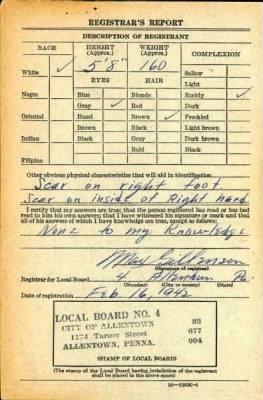 REGISTRAR'S REPORT
DESCRIPTION OF REGISTRANT
RACE HEIGHT (Approx.) WEIGHT (Approx.) COMPLEXION
White ✓ 5'8" 160 Sallow
EYES HAIR Light
Negro Blue Blonde Ruddy ✓
Gray ✓ Red Dark
Oriental Hazel Brown ✓ Freckled
Brown Black Light brown
Indian Black Gray Dark brown
Bald Black
Filipino
Other obvious physical characteristics that will aid in identification
Scar on right foot.
Scar on inside of Right hand
I certify that my answers are true; that the person registered has read or has had
read to him his own answers; that I have witnessed his signature or mark and that
all of his answers of which I have knowledge are true, except as follows:
None to my knowledge
(Signature of registrar)
Registrar for Local Board 4 Allentown Pa.
(Number) (City or county) (State)
Date of registration Feb. 16, 1942
LOCAL BOARD NO. 4
CITY OF ALLENTOWN 32
1124 Turner Street 077
ALLENTOWN, PENNA. 004
(STAMP OF LOCAL BOARD)
(The stamp of the Local Board having jurisdiction of the registrant
shall be placed in the above space)